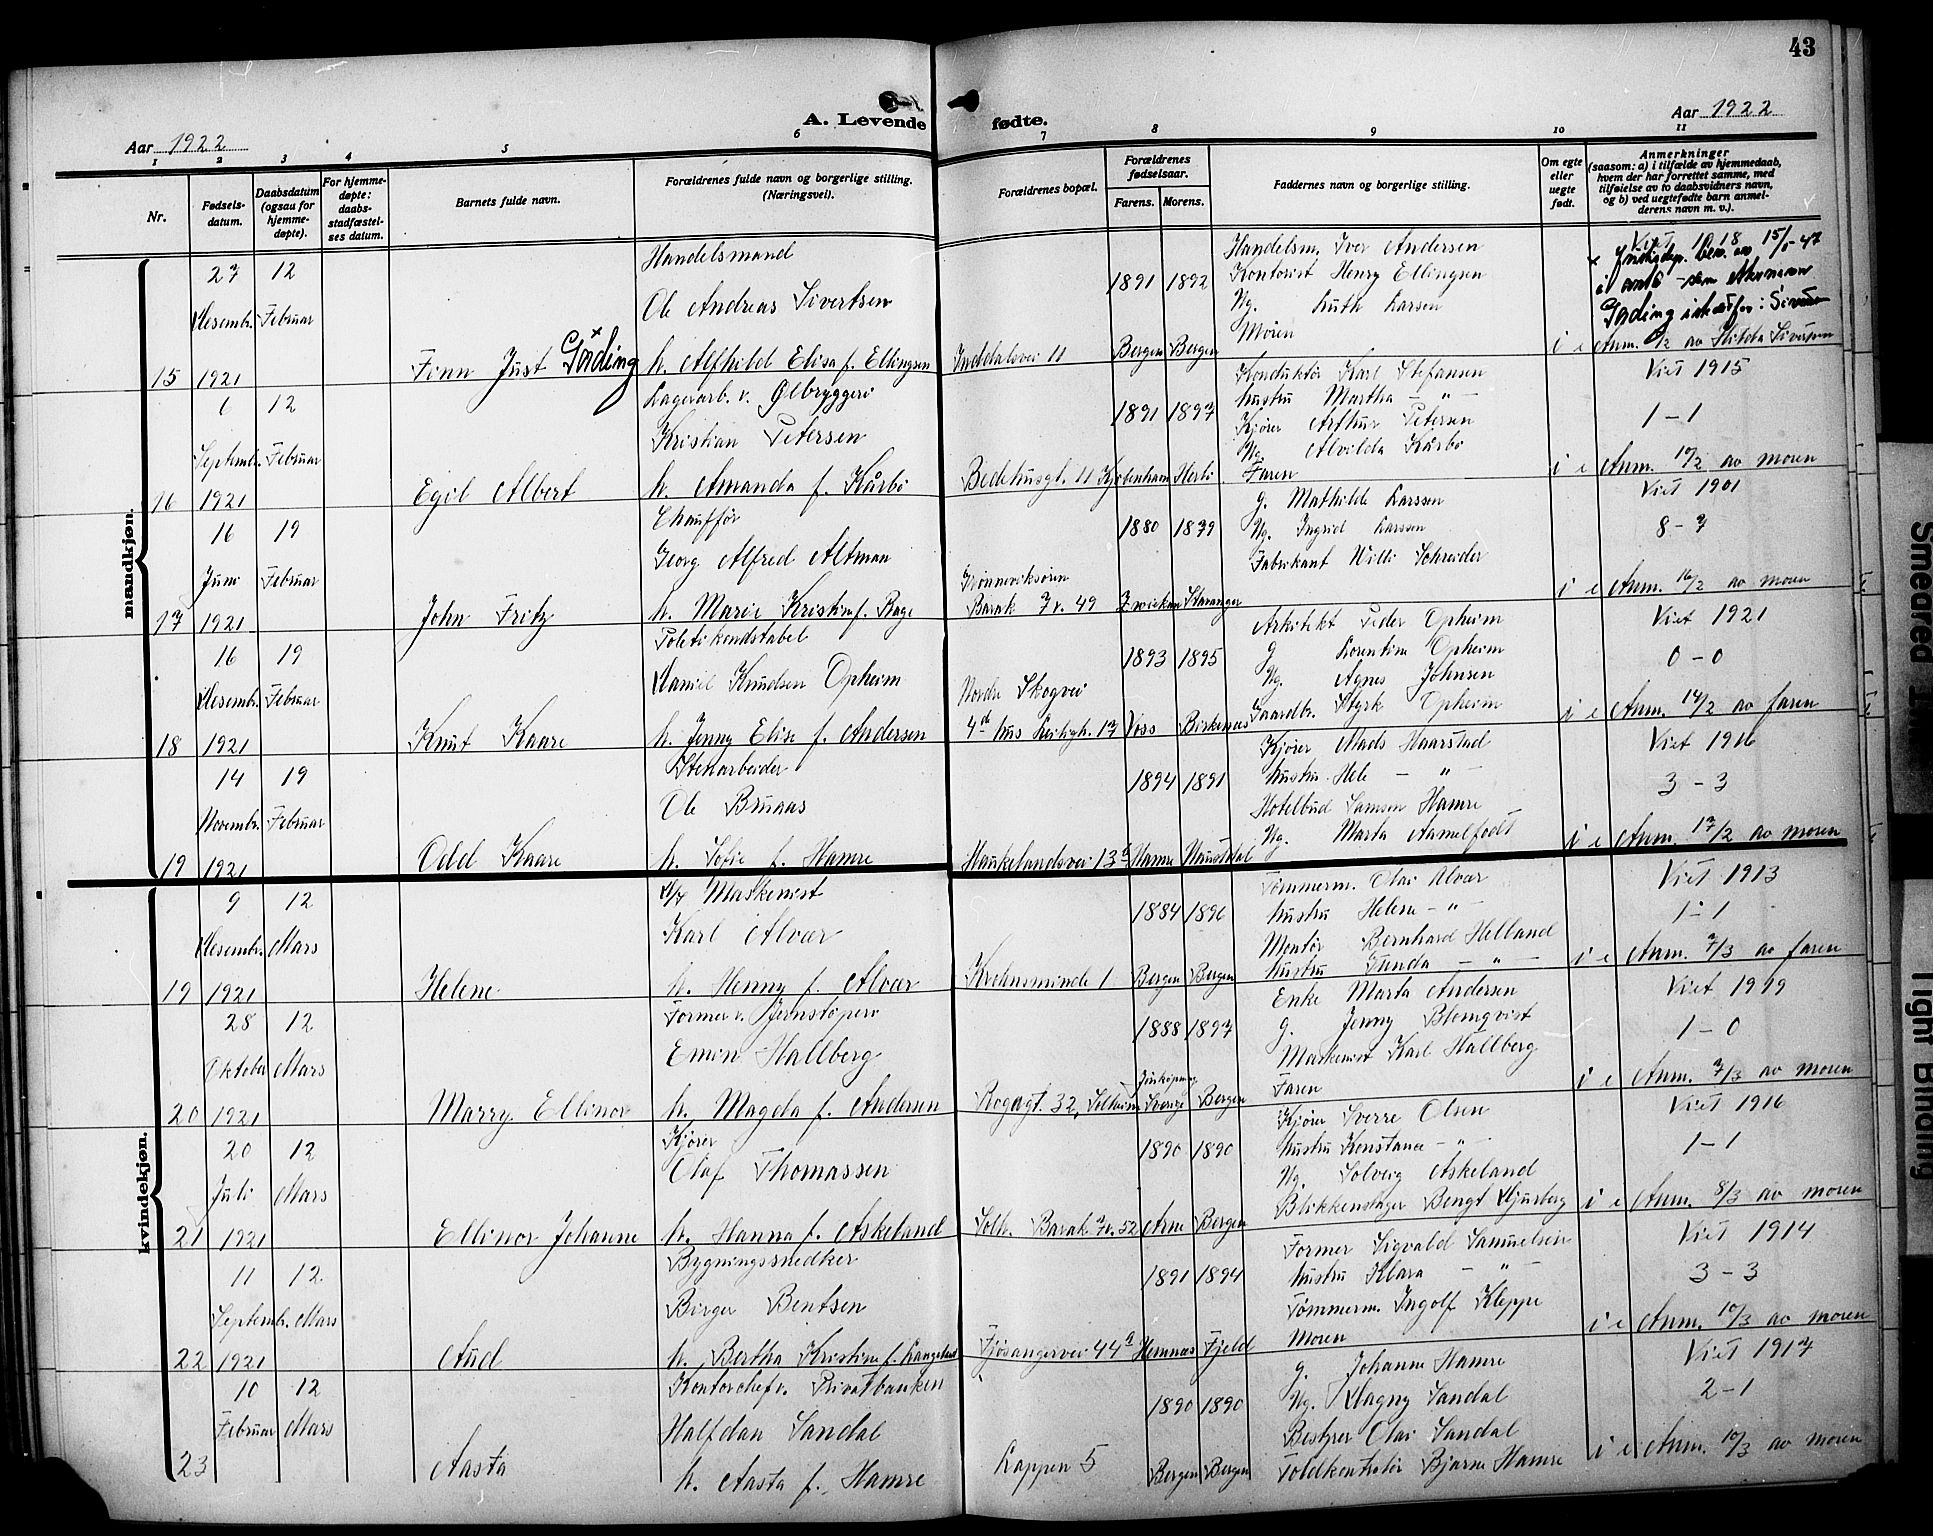 43
A. Levende fødte.
Aar 1922
Aar 1922
1 2 3 4 5 6 7 8 9 10 11
Nr.
Fødsels-
datum.
Daabsdatum
(ogsaa for
hjemme-
døpte).
For hjemme-
døpte:
daabs-
stadfæstel-
ses datum.
Barnets fulde navn.
Forældrenes fulde navn og borgerlige stilling.
(Næringsvei).
Forældrenes bopæl.
Forældrenes
fødselsaar.
Farens. Morens.
Faddernes navn og borgerlige stilling.
Om egte
eller
uegte
født.
Anmerkninger
(saasom: a) i tilfælde av hjemmedaab,
hvem der har forrettet samme, med
tilføielse av to daabsvidners navn,
og b) ved uegtefødte barn anmel-
derens navn m. v.).
mandkjøn.
15
27 Desembr. 1921
12 Februar
Finn Just Gording
Handelsmand
Ole Andreas Sivertsen
h. Alfhild Elisa f. Ellingsen
Inddalsvei 11
1891 Bergen
1892 Bergen
Handelsm. Iver Andersen
Kontorist Henry Ellingsen
Ug. Ruth Larsen
Moren
i e
Viet 1918
15/5-47
Gording
Anm. av Sivertsen
16
6 Septembr. 1921
12 Februar
Egil Albert
Lagerarb. v. Ølbryggeri
Kristian Petersen
h. Amanda f. Kårbø
Bedehusgt. 11
1891 Kjøbenhavn
1897 Herlø
Konduktør Karl Stefansen
hustru Martha - " -
Kjører Arthur Petersen
Ug. Alvilda Kårbø
Faren
i e
Viet 1915
1 - 1
Anm. 10/2 av moren
17
16 Juni 1921
19 Februar
John Fritz
Chauffør
Georg Alfred Altman
h. Marie Kristin f. Rage
Kronneviksøren
Barak 7 v. 49
1880 Zwickau
1879 Stavanger
g. Mathilde Larssen
Ug. Ingrid Larssen
Fabrikant Willi Schreider
i e
Viet 1901
8 - 7
Anm. 16/2 av moren
18
16 Desembr. 1921
19 Februar
Knut Kaare
Politikonstabel
Daniel Knudsen Opheim
h. Jenny Elise f. Andersen
Nordre Skogvei
4de hus Leiligh. 17
1893 Voss
1895 Birkenes
Arkitekt Peder Opheim
g. Lorentine Opheim
Ug. Agnes Johnsen
Gaardbr. Styrk Opheim
i e
Viet 1921
0 - 0
Anm. 14/2 av faren
19
14 Novembr. 1921
19 Februar
Odd Kaare
Stenarbeider
Ole Bruaas
h. Sofie f. Hamre
Haukelandsvei 13 b
1894 Hamre
1891 Naustdal
Kjører Mads Haarstad
hustru Hele - " -
Hotelbud Samson Hamre
Ug. Marta Aamelfodt
i e
Viet 1916
3 - 3
Anm. 17/2 av moren
kvindekjøn.
19
9 Desembr. 1921
12 Mars
Helene
D/S Maskinist
Karl Alvær
h. Henny f. Alvær
Krohnsminde 1
1884 Bergen
1896 Bergen
Tømmerm. Olai Alvær
hustru Helene - " -
Montør Bernhard Helland
hustru Gunda - " -
i e
Viet 1913
1 - 1
Anm. 7/3 av faren
20
28 Oktober 1921
12 Mars
Marry Ellinor
Former v. Jernstøperi
Emin Hallberg
h. Magda f. Andersen
Rogagt. 32, Solheim
1888 Jönköping Sverige
1897 Bergen
Enke Marta Andersen
g. Jenny Blomqvist
Maskinist Karl Hallberg
Faren
i e
Viet 1919
1 - 0
Anm. 7/3 av moren
21
20 Juli 1921
12 Mars
Ellinor Johanne
Kjører
Olaf Thomassen
h. Hanna f. Askeland
Solh. Barak 7 v. 52
1890 Arne
1890 Bergen
Kjører Sverre Olsen
hustru Konstance - " -
Ug. Solveig Askeland
Blikkenslager Bengt Hjusberg
i e
Viet 1916
1 - 1
Anm. 8/3 av moren
22
11 Septembr. 1921
12 Mars
Aud
Bygningssnedker
Birger Bentsen
h. Bertha Kristine f. Langeland
Fjøsangervei 44 a
1891 Hemnæs
1894 Fjeld
Former Sigvald Samuelsen
hustru Klara - " -
Tømmerm. Ingolf Kleppe
Moren
i e
Viet 1914
3 - 3
Anm. 10/3 av moren
23
10 Februar
12 Mars
Aasta
Kontorchef v. Privatbanken
Halfdan Sandal
h. Aasta f. Hamre
Lappen 5
1890 Bergen
1890 Bergen
g. Johanne Hamre
Ug. Dagny Sandal
Bestyrer Olai Sandal
Toldkontrolør Bjarne Hamre
i e
Viet 1917
2 - 1
Anm. 10/3 av moren
Smeared
Tight Binding